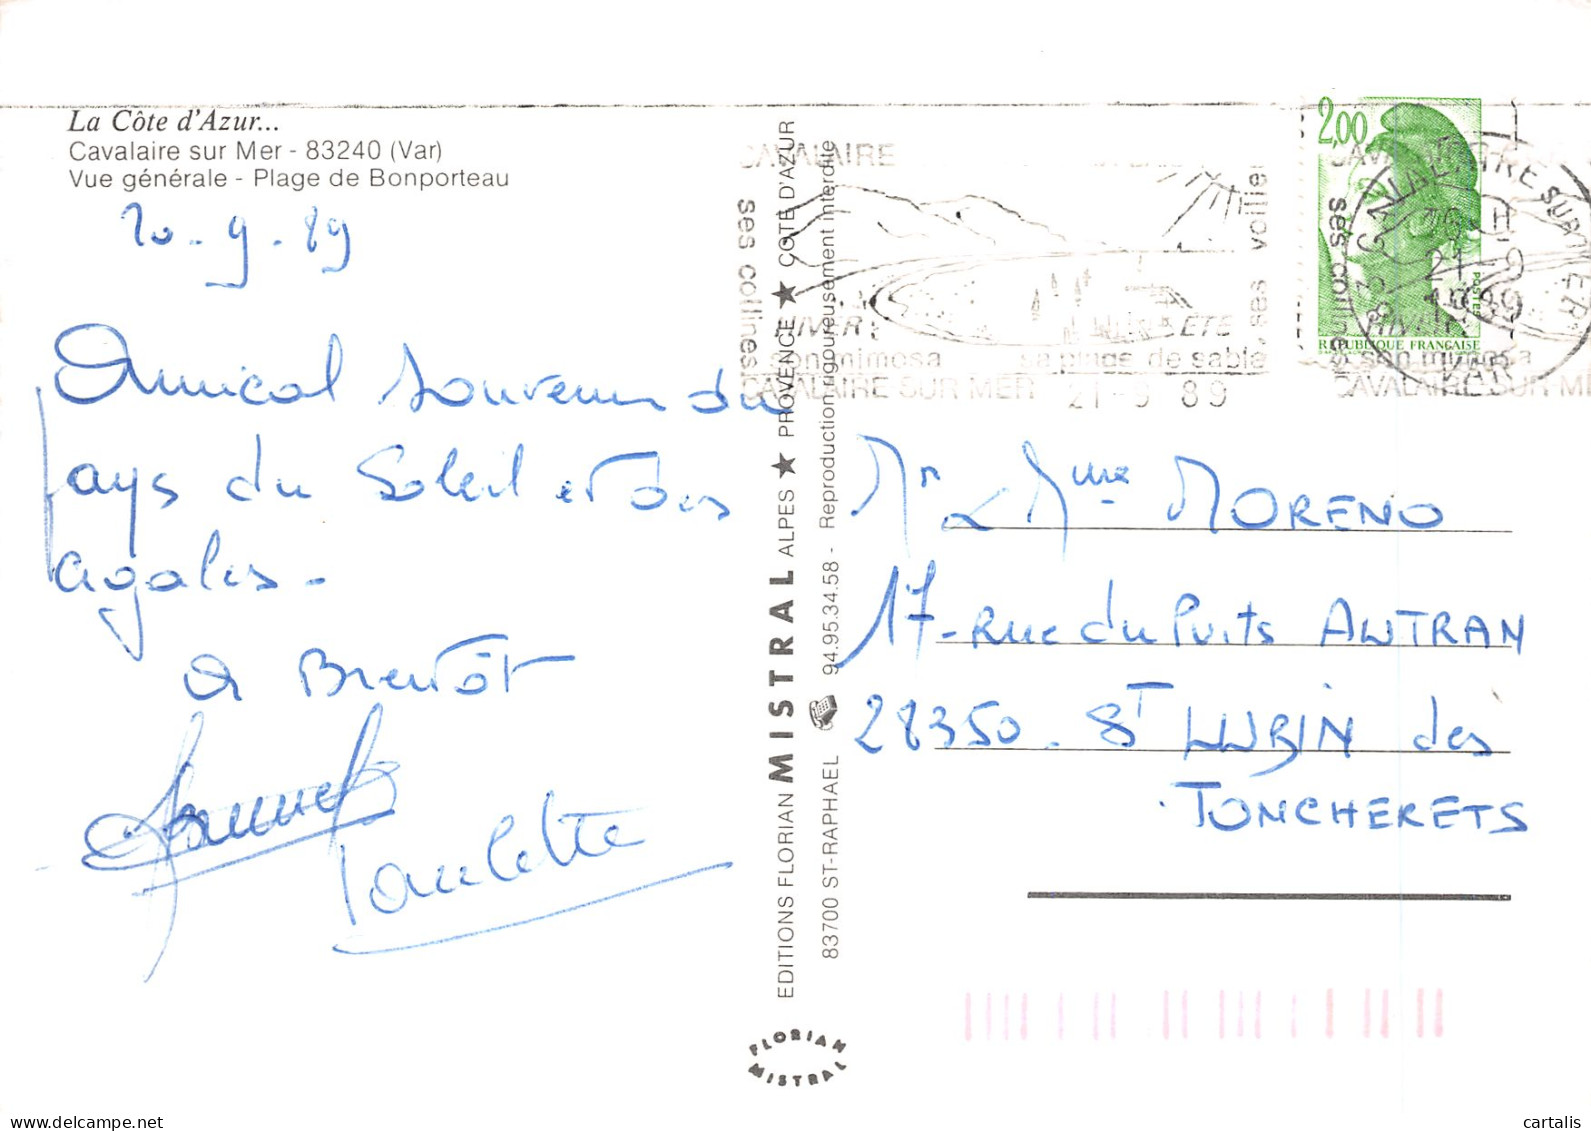 La Côte d'Azur...
Cavalaire sur Mer - 83240 (Var)
Vue générale - Plage de Bonporteau
20-9-89
Amical souvenir du
pays du Soleil et des
cigales -
a Bientôt
Paulette
EDITIONS FLORIAN MISTRAL ALPES ★ PROVENCE ★ COTE D'AZUR
83700 ST-RAPHAEL 94.95.34.58 - Reproduction rigoureusement interdite
FLORIAN
MISTRAL
CAVALAIRE
ses collines
ses voilie
HIVER ETE
son mimosa sa plage de sable
CAVALAIRE SUR MER 21-9 89
2,00
POSTES
REPUBLIQUE FRANÇAISE
83 CAVALAIRE SUR MER
21-9
1989
VAR
ses collines
HIVER
son mimosa
CAVALAIRE SUR ME
Mr & Mme MORENO
17-Rue du Puits AUTRAN
28350. ST LUBIN des
JONCHERETS
www.delcampe.net
cartalis